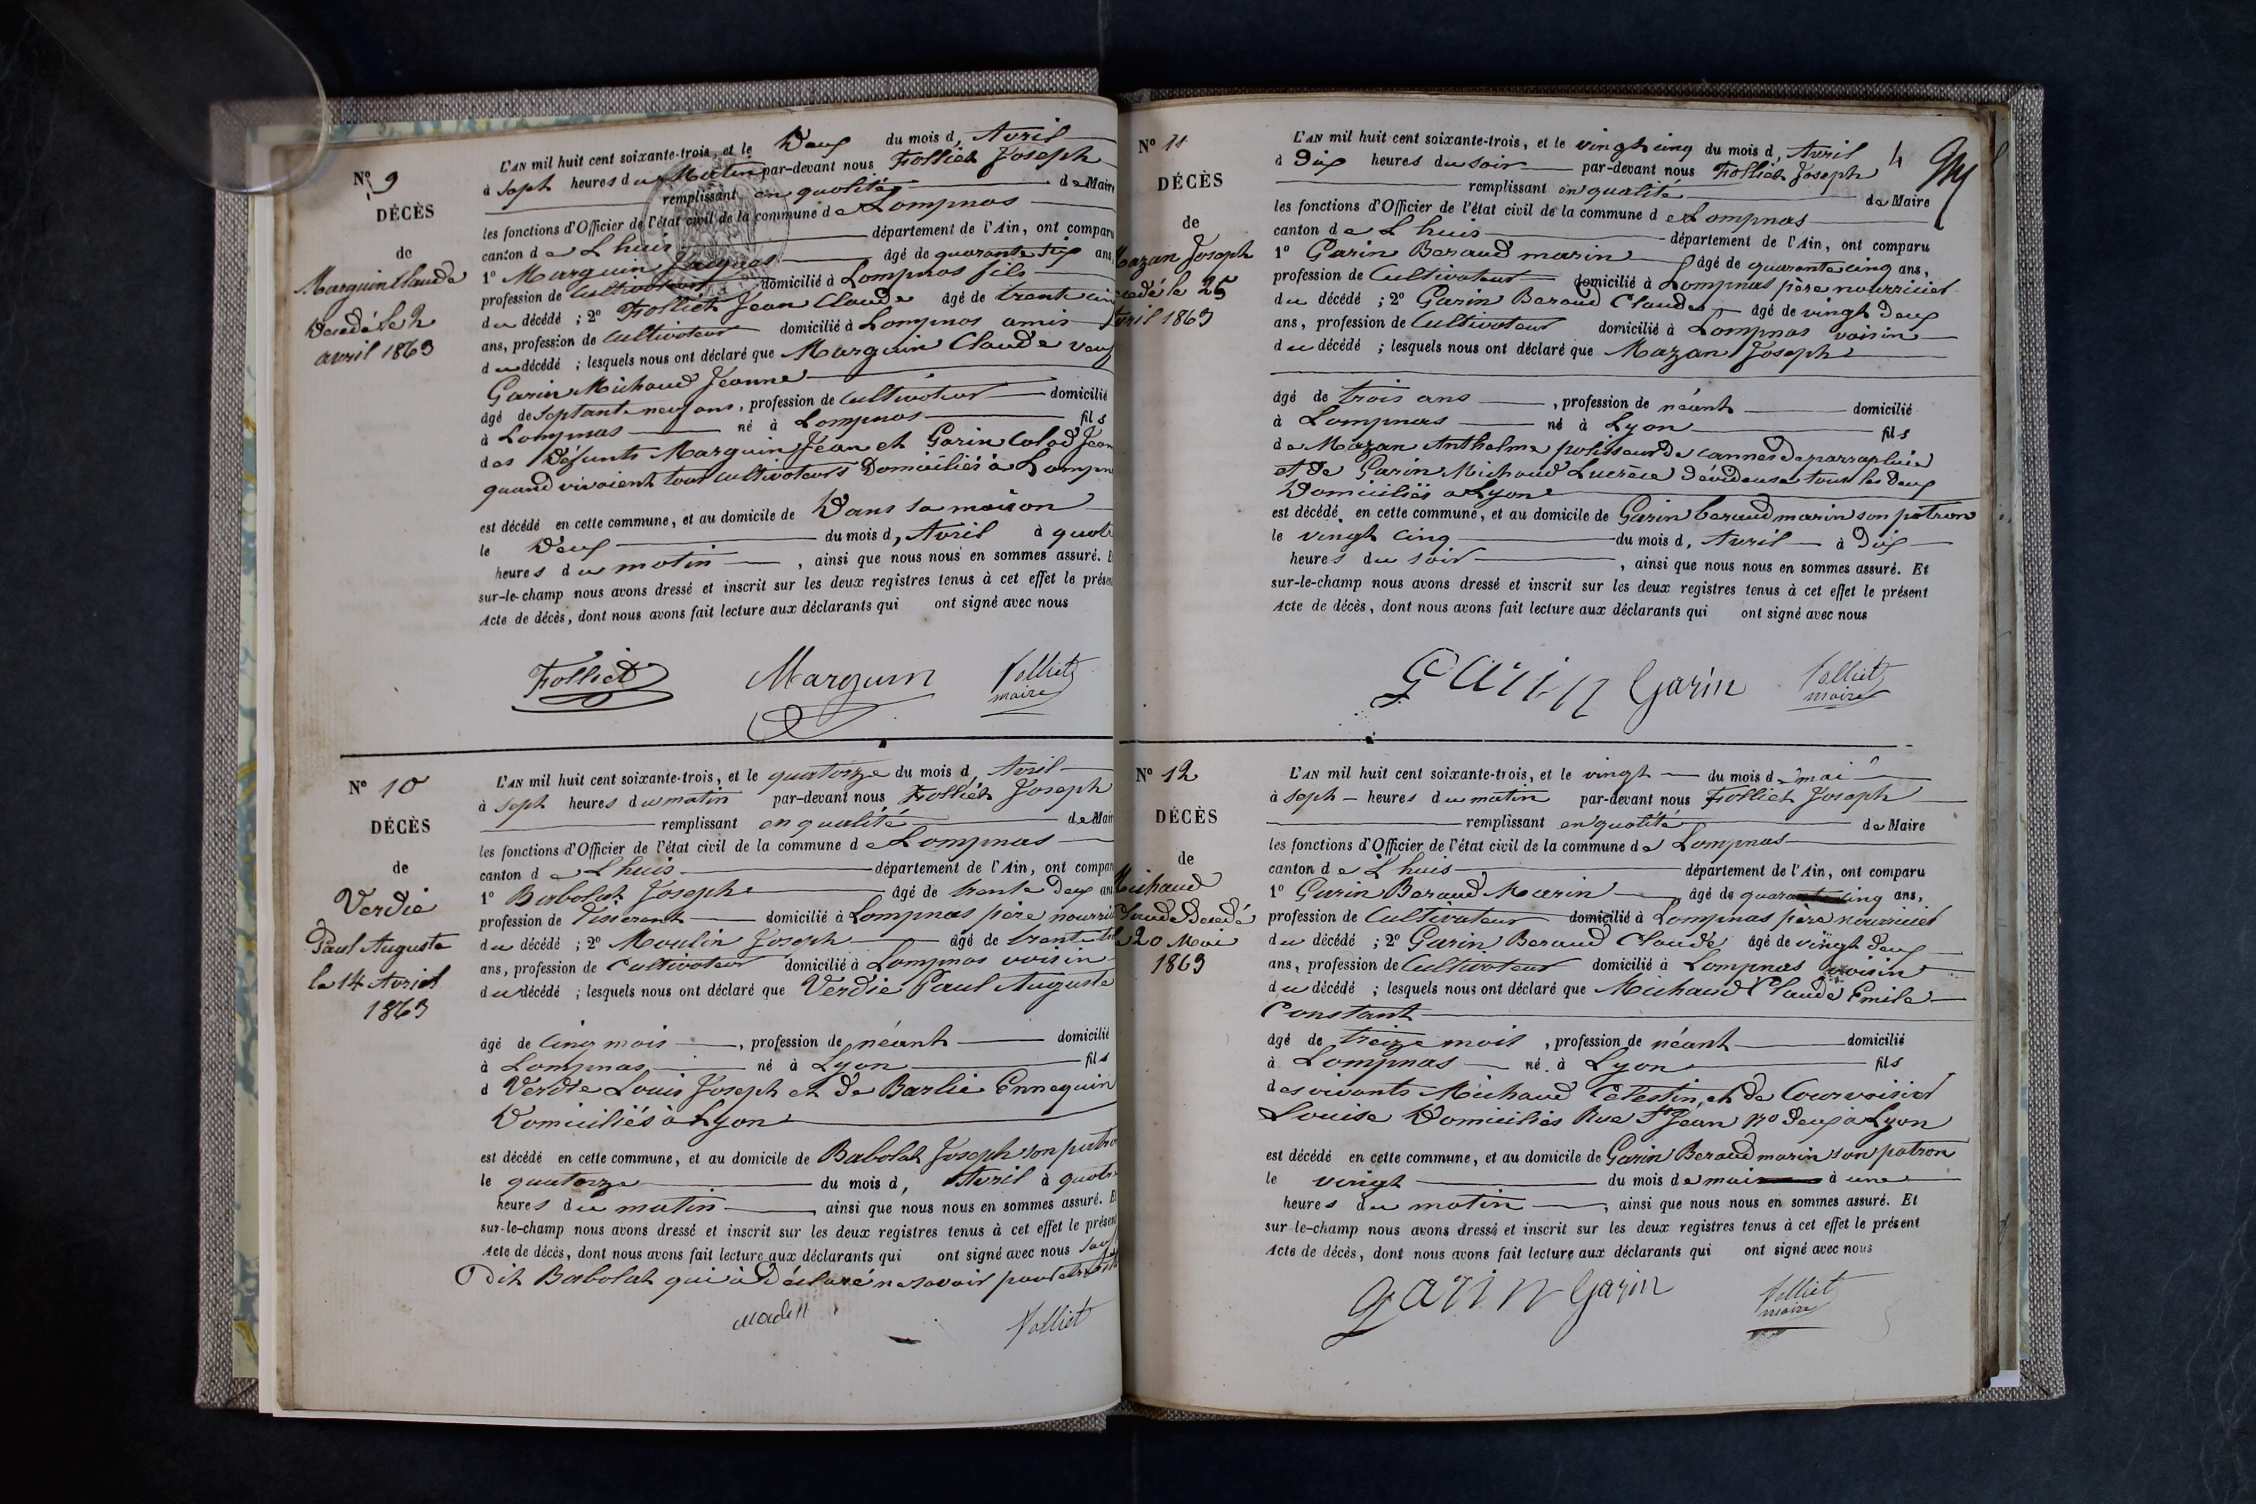 Nº 9
DÉCÈS
de
Marguin Claude
Décédé le 2
avril 1863
L'AN mil huit cent soixante-trois, et le Deux du mois d, Avril
à Sept heures du Matin par-devant nous Folliet Joseph
remplissant en qualité de Maire
les fonctions d'Officier de l'état civil de la commune de Lompnas
canton de Lhuis département de l'Ain, ont comparu
1º Marguin Jacques âgé de quarante six ans,
profession de Cultivateur domicilié à Lompnas fils
du décédé ; 2º Folliet Jean Claude âgé de trente cin
ans, profession de Cultivateur domicilié à Lompnas amis
du décédé ; lesquels nous ont déclaré que Marguin Claude veuf
Garin Michaud Jeanne
âgé de Septante neuf ans, profession de Cultivateur domicilié
à Lompnas né à Lompnas fils
des Défunts Marguin Jean et Garin Colad Jean
quand vivaient tout cultivateurs Domiciliés à Lompn
est décédé en cette commune, et au domicile de Dans sa maison
le Deux du mois d, Avril à quatr
heures du matin, ainsi que nous nous en sommes assuré. E
sur-le-champ nous avons dressé et inscrit sur les deux registres tenus à cet effet le présen
Acte de décès, dont nous avons fait lecture aux déclarants qui ont signé avec nous
Folliet Marguin Folliet
maire
Nº 10
DÉCÈS
de
Verdie
Paul Auguste
le 14 Avril
1863
L'AN mil huit cent soixante-trois, et le quatorze du mois d, Avril
à Sept heures du matin par-devant nous Folliet Joseph
remplissant en qualité de Mair
les fonctions d'Officier de l'état civil de la commune de Lompnas
canton de Lhuis département de l'Ain, ont compar
1º Babolat Joseph âgé de trente deux ans
profession de Tisserant domicilié à Lompnas père nourri
du décédé ; 2º Moulin Joseph âgé de trente
ans, profession de Cultivateur domicilié à Lompnas voisin
du décédé ; lesquels nous ont déclaré que Verdie Paul Auguste
âgé de Cinq mois, profession de néant domicilié
à Lompnas né à Lyon fils
d Verdie Louis Joseph et de Barlie Ennequin
Domiciliés à Lyon
est décédé en cette commune, et au domicile de Babolat Joseph son patro
le quatorze du mois d, Avril à quatre
heures du matin, ainsi que nous nous en sommes assuré. E
sur-le-champ nous avons dressé et inscrit sur les deux registres tenus à cet effet le présen
Acte de décès, dont nous avons fait lecture aux déclarants qui ont signé avec nous sauf
Dit Babolat qui à Déclaré ne savoir
Folliet
Nº 11
DÉCÈS
de
Mazan Joseph
cédé le 25
Avril 1863
L'AN mil huit cent soixante-trois, et le vingt cinq du mois d, Avril
à Dix heures du soir par-devant nous Folliet Joseph
remplissant en qualité de Maire
les fonctions d'Officier de l'état civil de la commune de Lompnas
canton de Lhuis département de l'Ain, ont comparu
1º Garin Beraud marin âgé de quarante cinq ans,
profession de Cultivateur domicilié à Lompnas père nourricier
du décédé ; 2º Garin Beraud Claude âgé de vingt deux
ans, profession de Cultivateur domicilié à Lompnas voisin
du décédé ; lesquels nous ont déclaré que Mazan Joseph
âgé de trois ans, profession de néant domicilié
à Lompnas né à Lyon fils
de Mazan Anthelme polisseur de cannes de parrapluie
et de Garin Michaud Lucrèce dévideuse tous les deux
Domiciliés à Lyon
est décédé en cette commune, et au domicile de Garin beraud marin son patron
le vingt Cinq du mois d, Avril à Dix
heures du soir, ainsi que nous nous en sommes assuré. Et
sur-le-champ nous avons dressé et inscrit sur les deux registres tenus à cet effet le présent
Acte de décès, dont nous avons fait lecture aux déclarants qui ont signé avec nous
4
Garin Garin Folliet
maire
Nº 12
DÉCÈS
de
Michaud
Claude Décédé
le 20 Mai
1863
L'AN mil huit cent soixante-trois, et le vingt du mois de mai
à Sept heures du matin par-devant nous Folliet Joseph
remplissant en qualité de Maire
les fonctions d'Officier de l'état civil de la commune de Lompnas
canton de Lhuis département de l'Ain, ont comparu
1º Garin Beraud Marin âgé de quarante cinq ans,
profession de Cultivateur domicilié à Lompnas père nourricier
du décédé ; 2º Garin Beraud Claude âgé de vingt deux
ans, profession de Cultivateur domicilié à Lompnas voisin
du décédé ; lesquels nous ont déclaré que Michaud Claude Emile
Constant
âgé de treize mois, profession de néant domicilié
à Lompnas né à Lyon fils
des vivants Michaud Celestin, et de Courvoisier
Louise Domiciliés Rue St Jean nº Deux à Lyon
est décédé en cette commune, et au domicile de Garin Beraud marin son patron
le vingt du mois de mai à une
heures du matin, ainsi que nous nous en sommes assuré. Et
sur-le-champ nous avons dressé et inscrit sur les deux registres tenus à cet effet le présent
Acte de décès, dont nous avons fait lecture aux déclarants qui ont signé avec nous
Garin Garin Folliet
maire